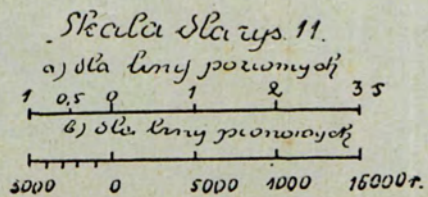 Skala dla rys. 11.
a) dla linij poziomych
1 0,5 0 1 2 3 s
b) dla linij pionowych
5000 0 5000 1000 15000 r.